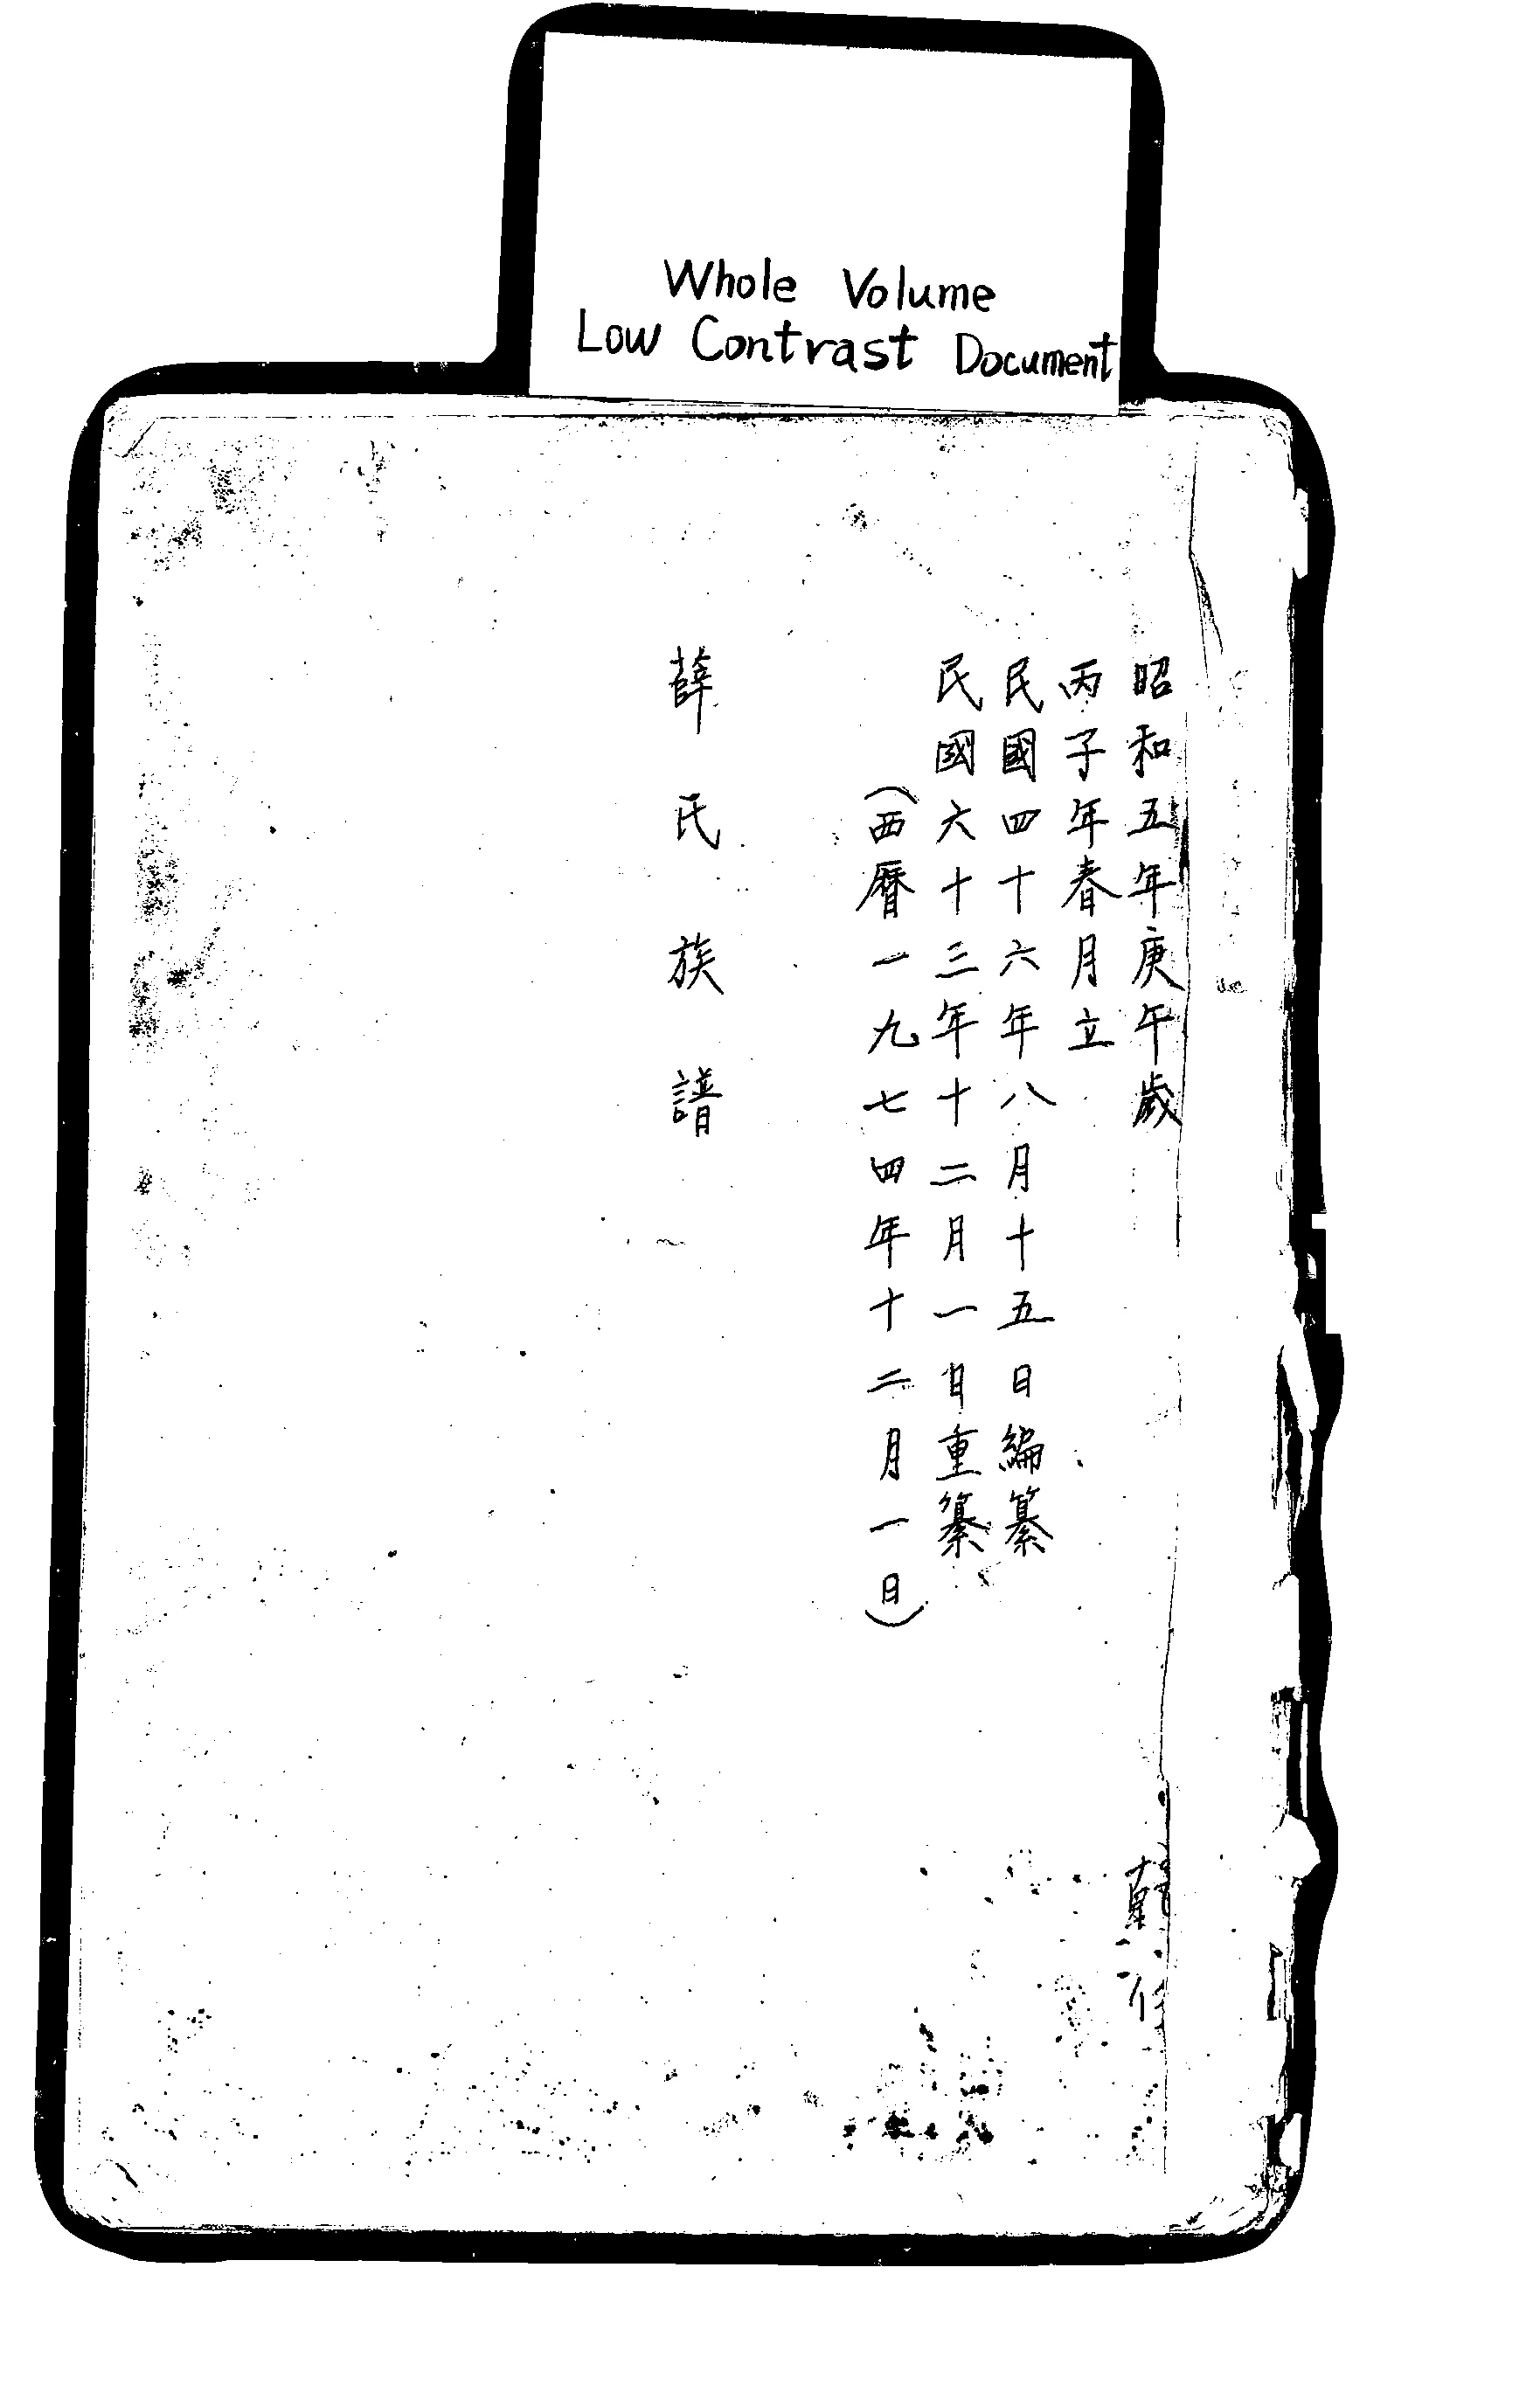 Whole Volume
Low Contrast Document
昭和五年庚午歲
丙子年春月立
民國四十六年八月十五日編纂
民國六十三年十二月一日重纂
（西曆一九七四年十二月一日）
薛氏族譜